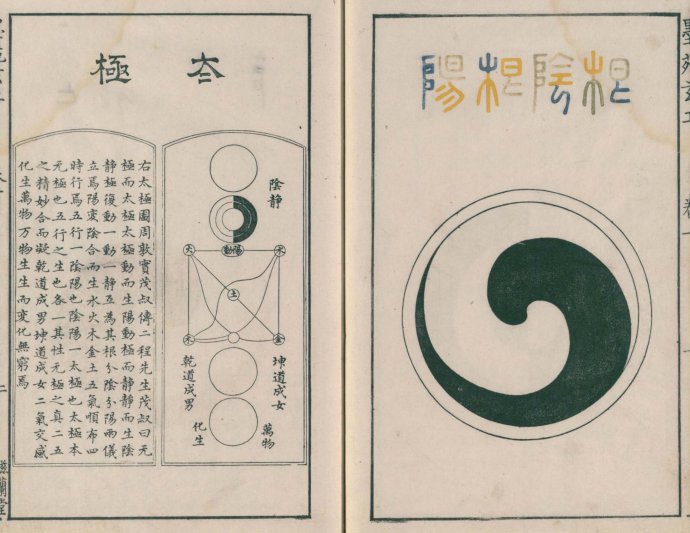 墨苑玄工
卷一
根陰根陽
太極
陰靜
陽動
水
火
土
金
木
坤道成女
乾道成男
萬物
化生
右太極圖周敦實茂叔傳二程先生茂叔曰无
極而太極太極動而生陽動極而靜靜而生陰
靜極復動一動一靜互為其根分陰分陽兩儀
立焉陽変陰合而生水火木金土五氣順布四
時行焉五行一陰陽也陰陽一太極也太極本
无極也五行之生也各一其性无極之真二五
之精妙合而凝乾道成男坤道成女二氣交感
化生萬物万物生生而変化無窮焉
滋蘭堂